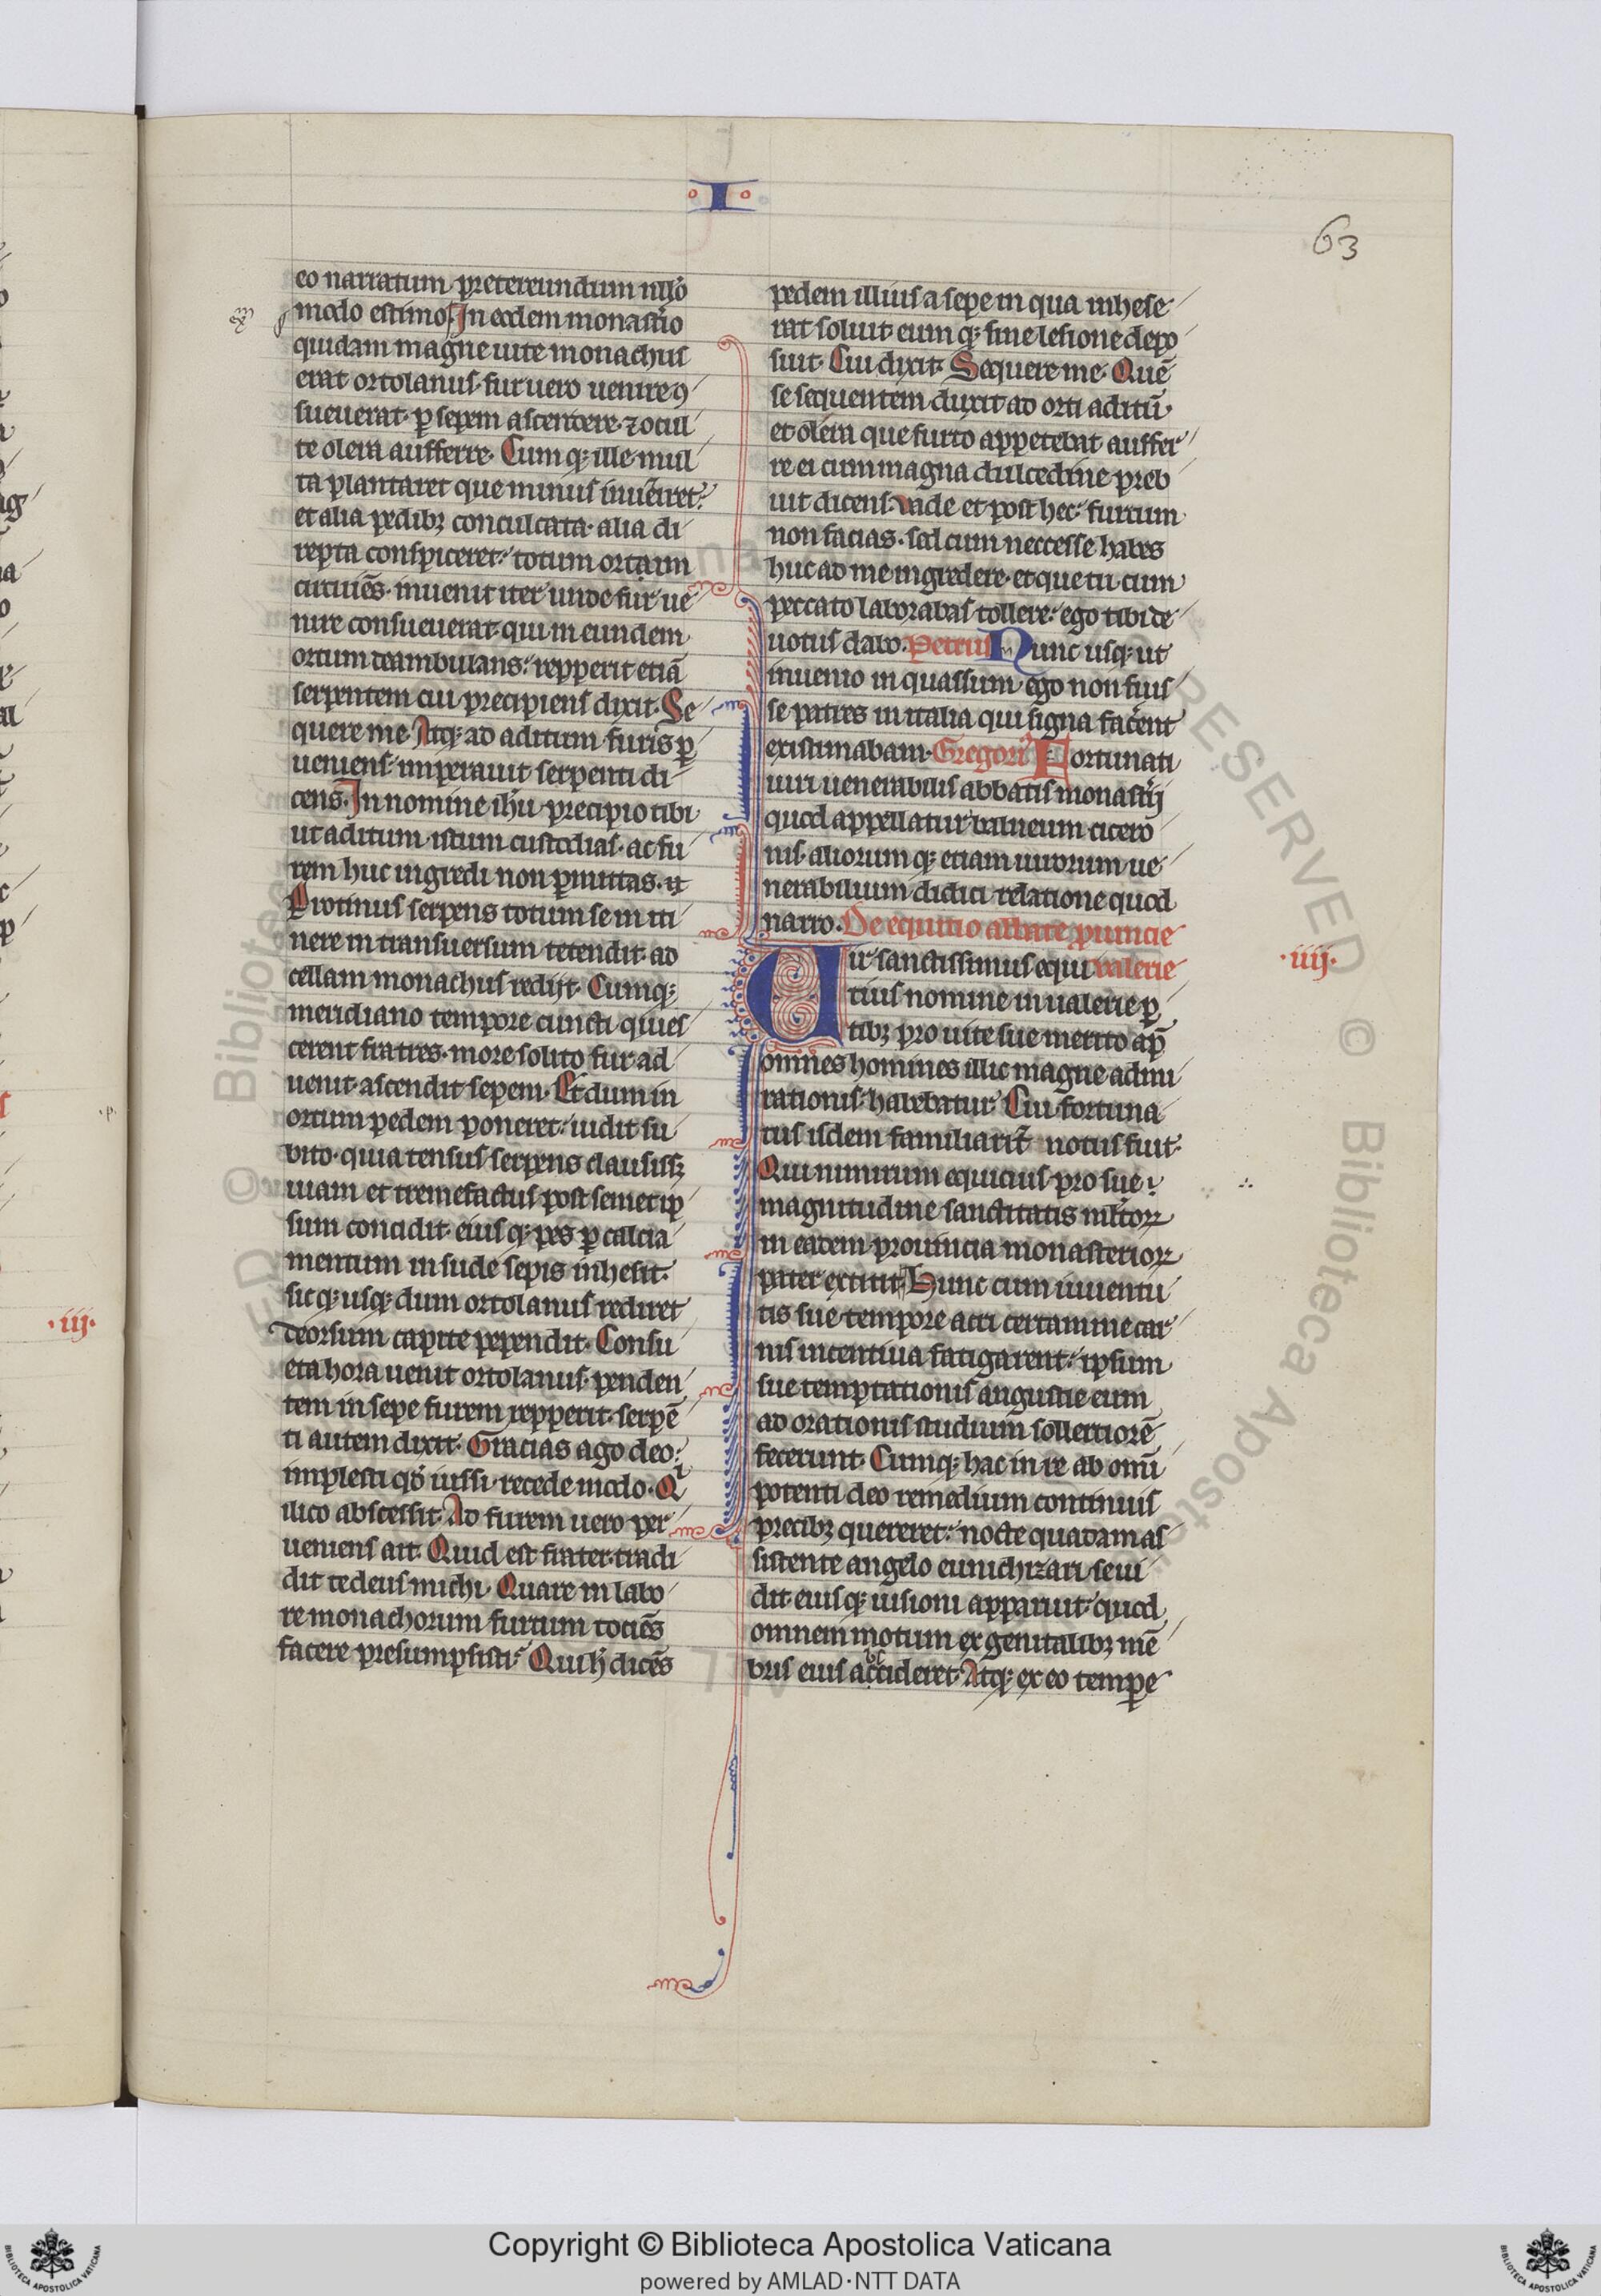 I
63
eo narratum pretereundum nllo
modo estimo. In eodem monastio
quidam magne uite monachus
erat ortolanus. fur uero uenire ꝯ
sueuerat. ꝑ sepem ascendere. ⁊ ocul
te olera aufferre. Cumqꝫ ille mul
ta plantaret que minus inuēiret.
et alia pedibꝫ conculcata. alia di
repta conspiceret. totum ortum
circuiēs. inuenit iter unde fur ue
nire consueuerat. qui in eundem
ortum deambulans. repperit etiā
serpentem cui precipiens dixit. Se
quere me. Atqꝫ ad aditum furis ꝑ
ueniens. imperauit serpenti di
cens. In nomine ih̄u precipio tibi
ut aditum istum custodias. ac fu
rem huc ingredi non ꝑmittas.
Protinus serpens totum se in iti
nere in transuersum tetendit. ad
cellam monachus redijt. Cumqꝫ
meridiano tempore cuncti quies
cerent fratres. more solito fur ad
uenit. ascendit sepem. Et dum in
ortum pedem poneret. uidit su
bito. quia tensus serpens clausissꝫ
uiam et tremefactus post semet ip
sum concidit. eiusqꝫ pes ꝑ calcia
mentum in sude sepis inhesit.
sicqꝫ usqꝫ dum ortolanus rediret
deorsum capite pependit. Consu
eta hora uenit ortolanus. penden
tem in sepe furem repperit. serpē
ti autem dixit. Gracias ago deo.
implesti qđ iussi. recede modo. Qⁱ
ilico abscessit. Ad furem uero per
ueniens ait. Quid est frater. tradi
dit te deus michi. Quare in labo
re monachorum furtum tociēs
facere presumpsisti. Qui h̄ dicēs
pedem illius a sepe in qua inhese
rat soluit. eumqꝫ sine lesione depo
suit. Cui dixit. Sequere me. Quē
se sequentem duxit ad orti aditū.
et olera que furto appetebat auffer
re ei cum magna dulcedine preb
uit dicens. Uade et post hec furtum
non facias. sed cum neccesse habes
huc ad me ingredere. et que tu cum
peccato laborabas tollere. ego tibi de
uotus dabo. Petrus Nunc usqꝫ ut
inuenio in quassum ego non fuis
se patres in italia qui signa facerent
existimabam. Gregoriꝰ Fortunati
uiri uenerabilis abbatis monastij
quod appellatur balneum cicero
nis. aliorumqꝫ etiam uirorum ue
nerabilium didici relatione quod
narro. De equitio abbate prouincie
Uir sanctissimus equi valerie
.iiij.
tius nomine in ualerie ꝑ
tibꝫ pro uite sue merito ap̄
omnes homines illic magne admi
rationis habebatur. Cui fortuna
tus isdem familiarit̄ notus fuit.
Qui nimirum equicius pro sue
magnitudine sanctitatis multorꝝ
in eadem prouincia monasteriorꝝ
pater extitit. Hunc cum iuuentu
tis sue tempore acri certamine car
nis incentiua fatigarent. ipsum
sue temptationis angustie eum
ad orationis studium sollertiorē
fecerunt. Cumqꝫ hac in re ab omī
potenti deo remedium continuis
precibꝫ quereret. nocte quadam as
sistente angelo eunichizari se ui
dit. eiusqꝫ uisioni apparuit. quod
omnem motum ex genitalibꝫ mē
bris eius accideret. Atqꝫ ex eo tempe
.iij.
Copyright © Biblioteca Apostolica Vaticana
powered by AMLAD·NTT DATA